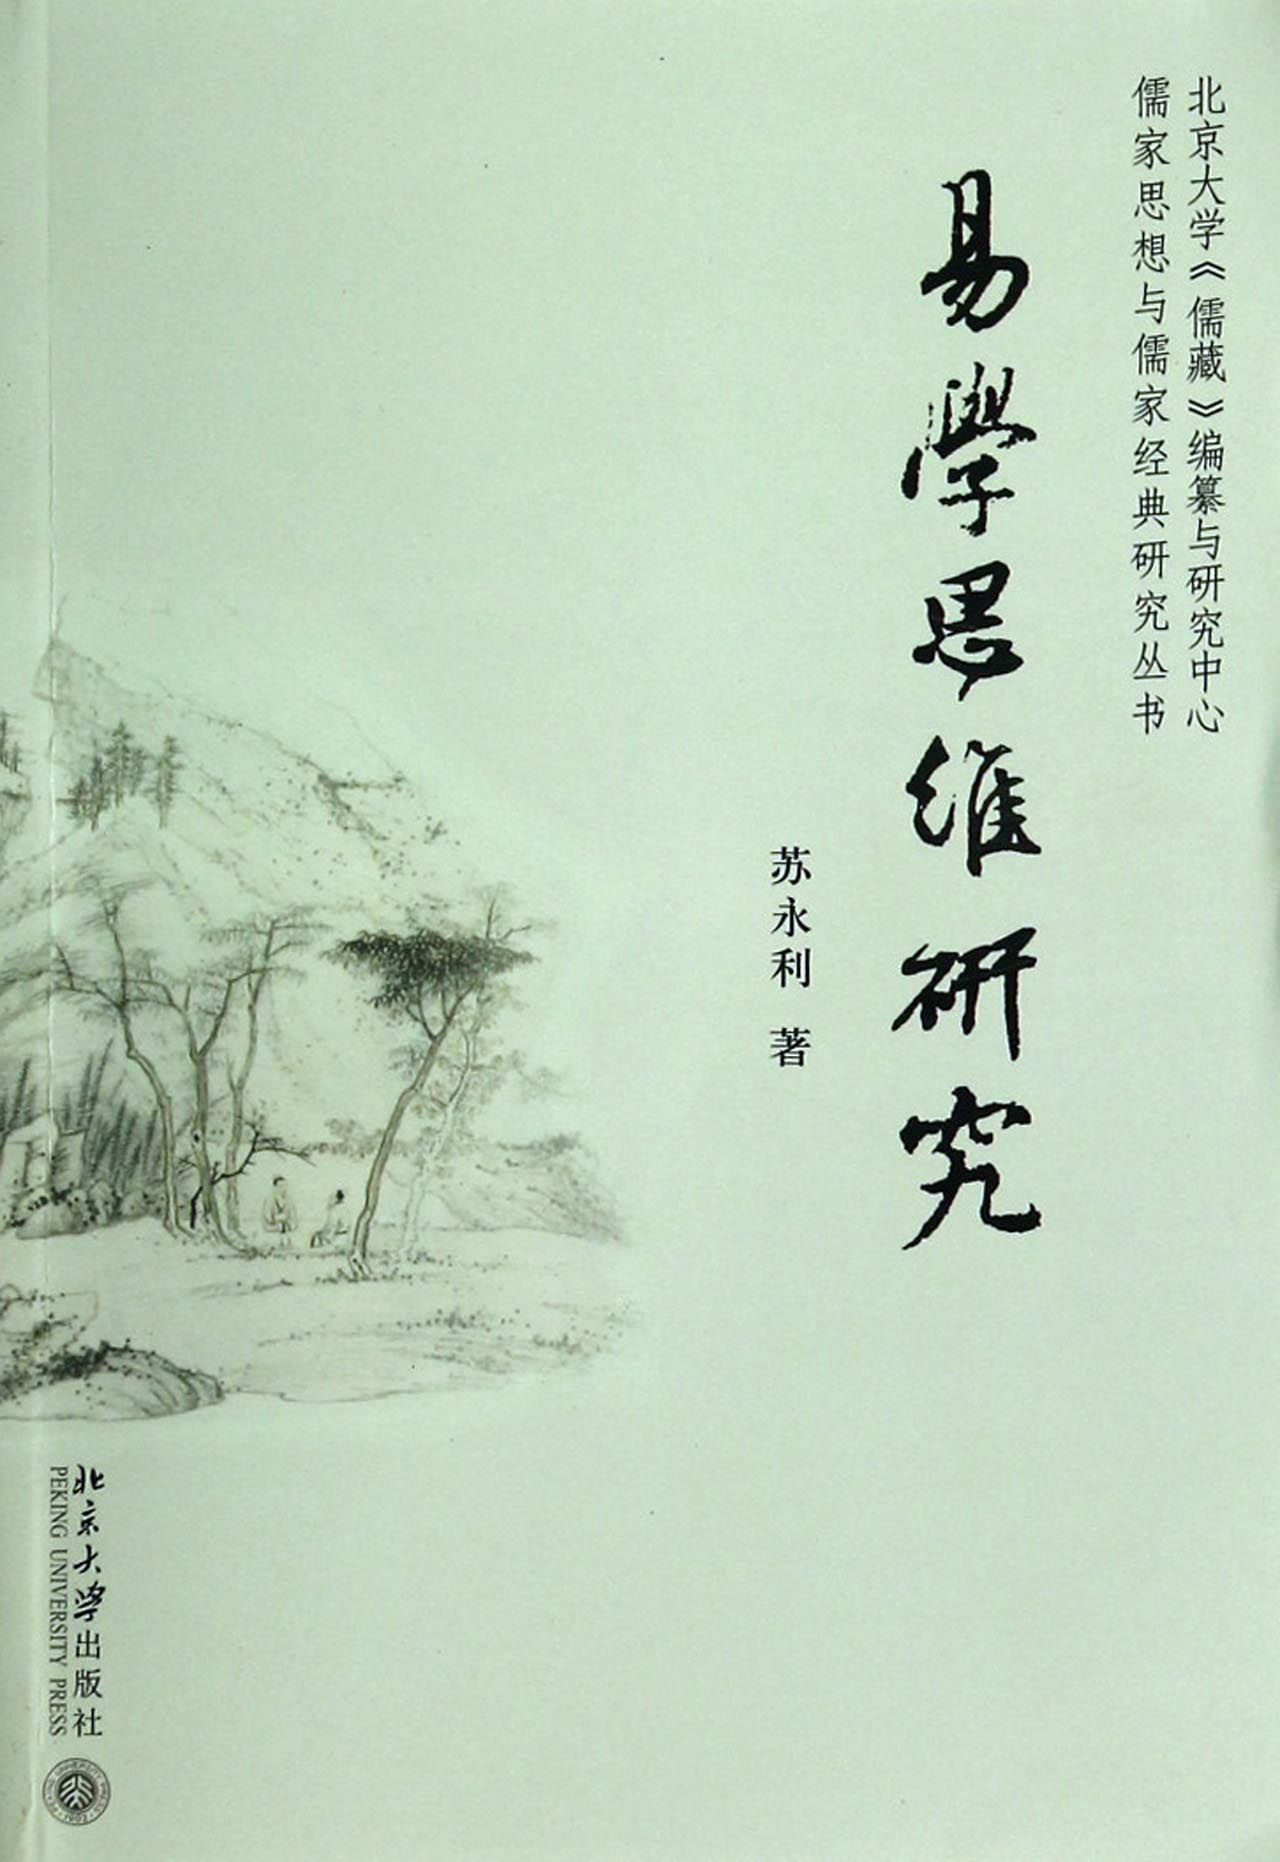 北京大学《儒藏》编纂与研究中心
儒家思想与儒家经典研究丛书
易學思维研究
苏永利 著
北京大学出版社
PEKING UNIVERSITY PRESS